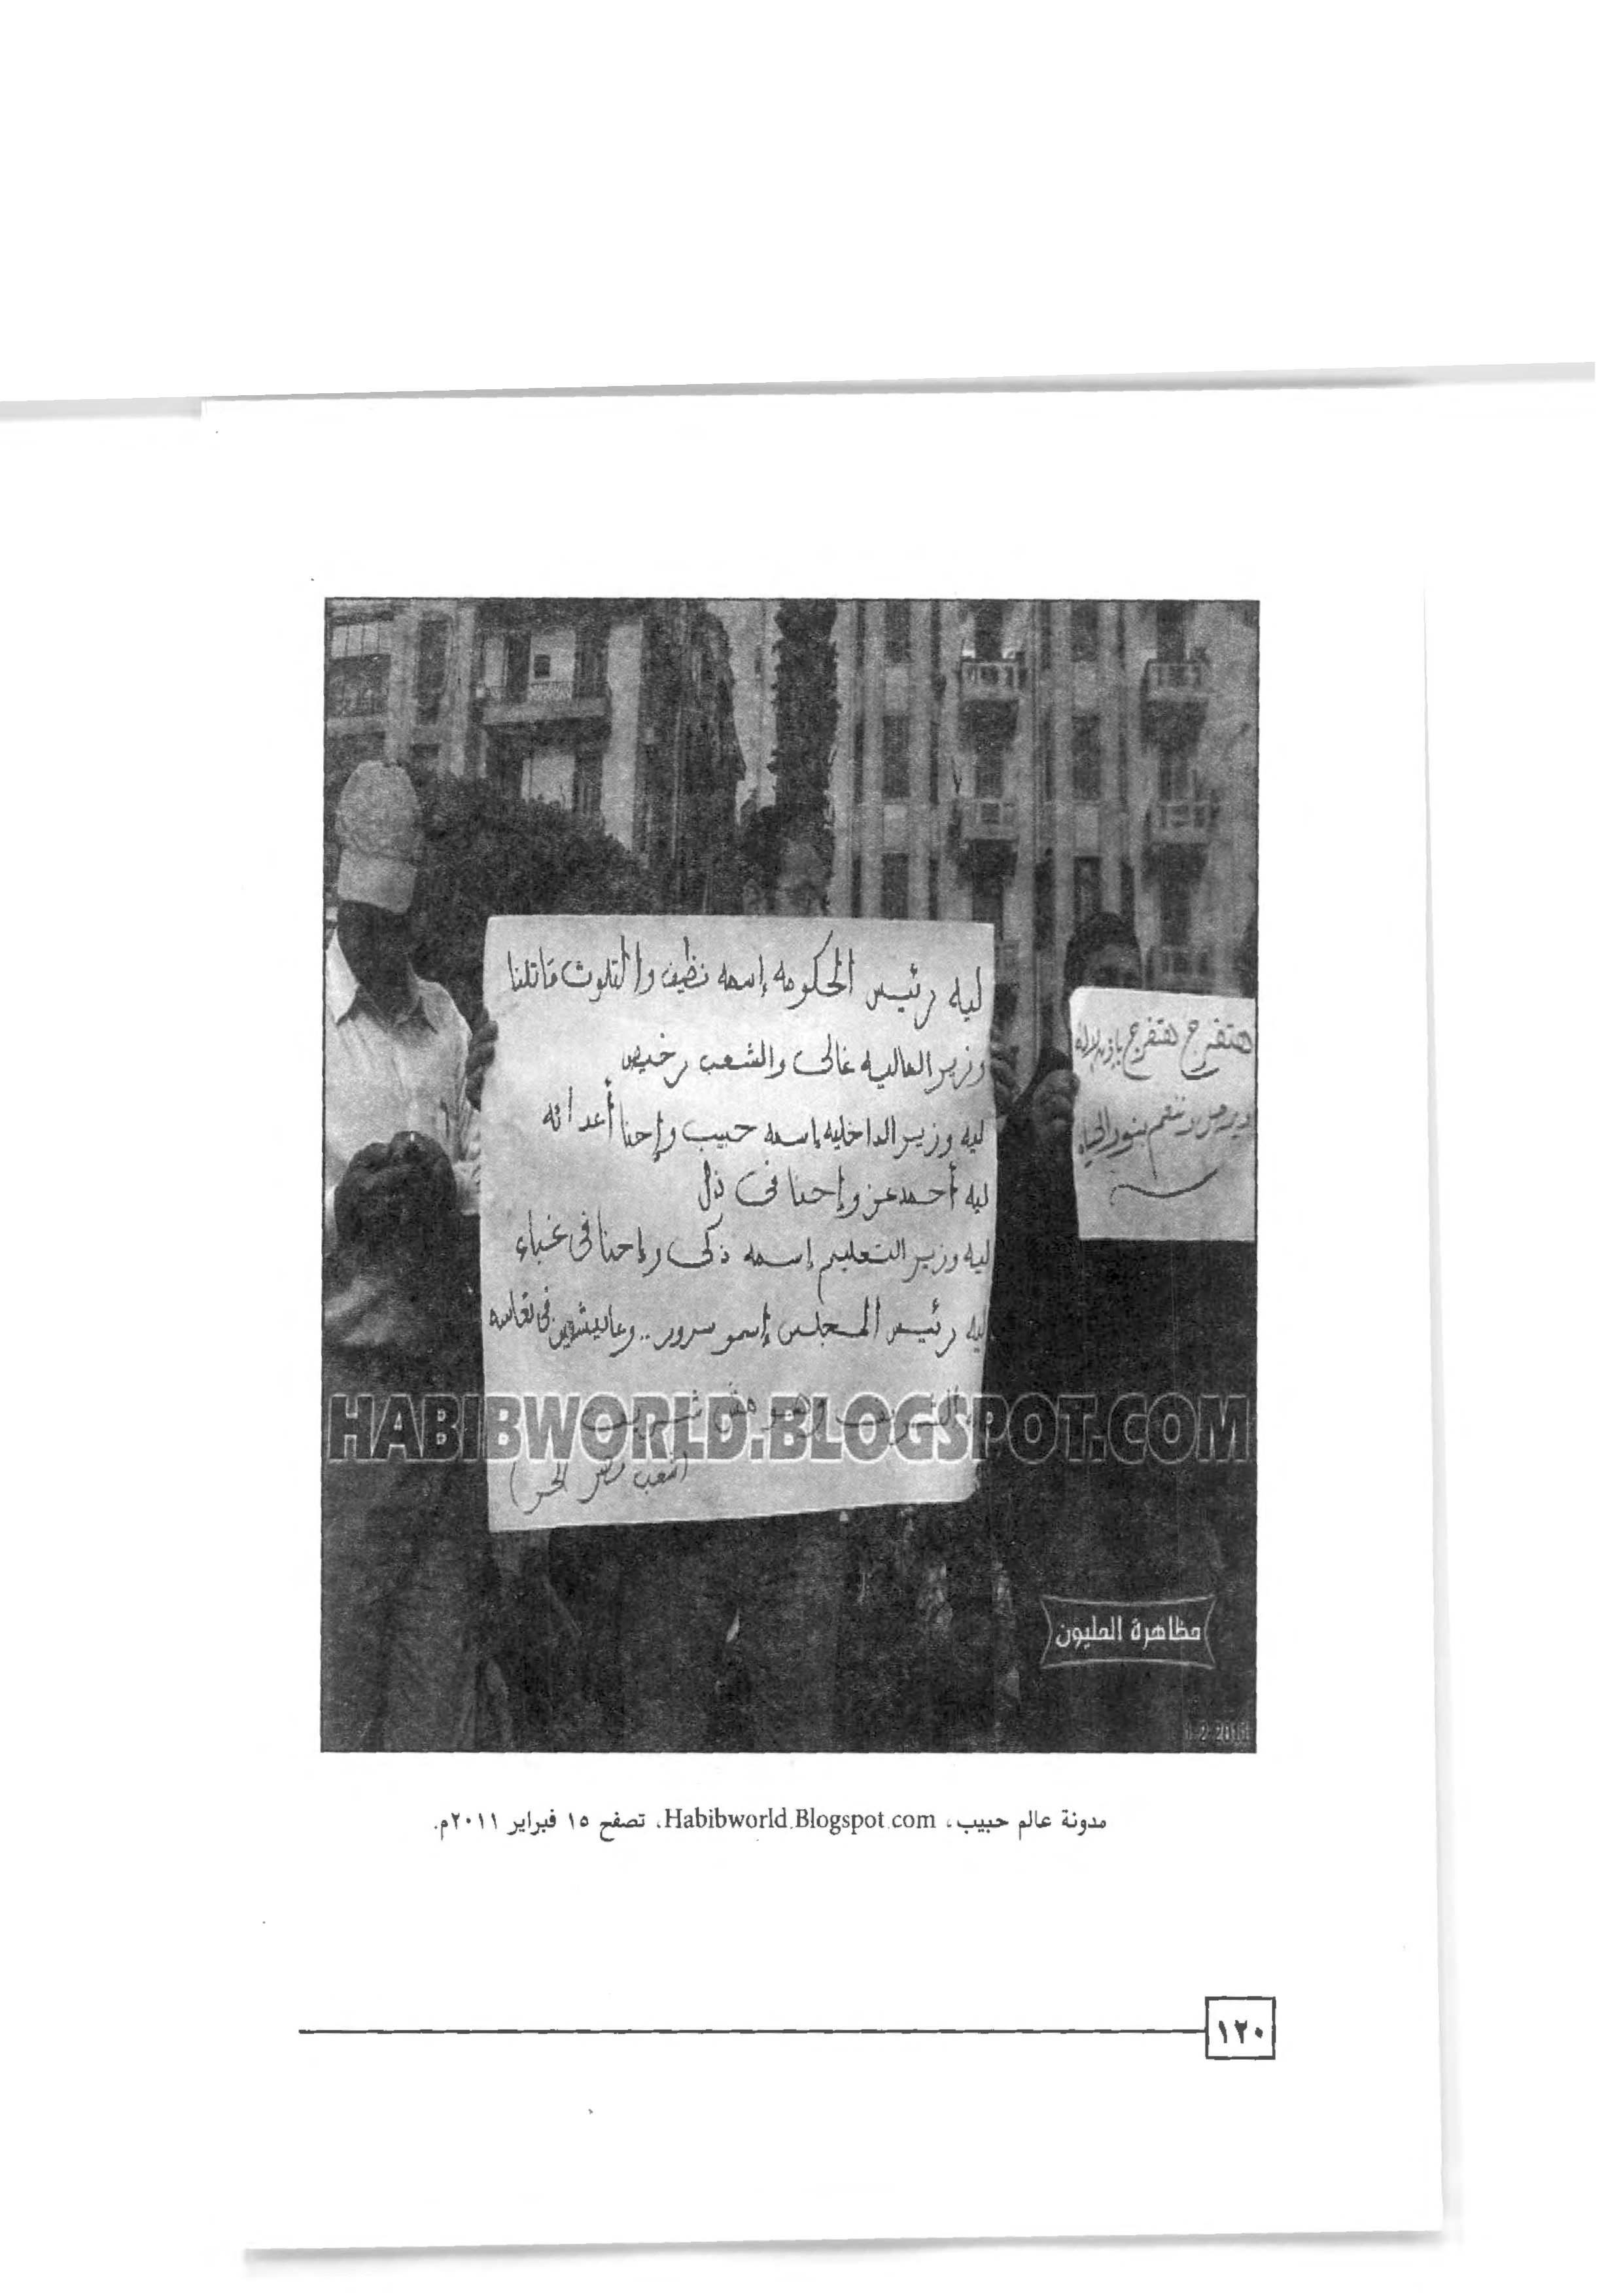 ليه رئيس الحكومه إسمه نظيف والتلوث قاتلنا
وزير الماليه غالى والشعب رخيص
ليه وزير الداخليه إسمه حبيب وإحنا أعدائه
ليه أحمد عز وإحنا فى ذل
ليه وزير التعليم إسمه ذكى وإحنا فى غباء
ليه رئيس المجلس إسمو سرور .. وعايشين فى تعاسه
الشريف وهو مش شريف
(شعب مصر الحر)
هتفرج هتفرج بإذن الإله
بنور الحياه
HABIBWORLD.BLOGSPOT.COM
مظاهرة المليون
مدونة عالم حبيب، Habibworld.Blogspot.com، تصفح ١٥ فبراير ٢٠١١م.
١٢٠